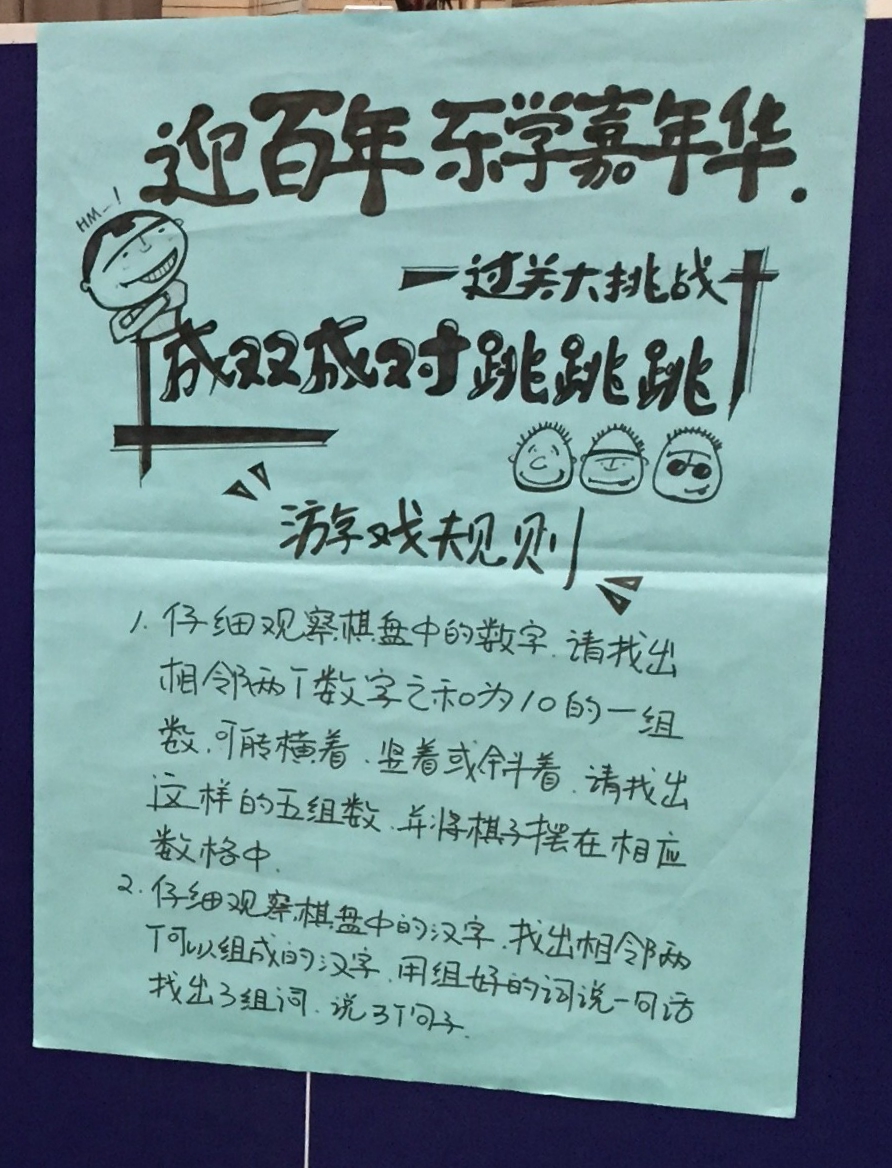 迎百年 乐学嘉年华.
HM_!
—过关大挑战
成双成对跳跳跳
游戏规则
1. 仔细观察棋盘中的数字.请找出
相邻两个数字之和为10的一组
数.可能横着.竖着或斜着.请找出
这样的五组数.并将棋子摆在相应
数格中.
2. 仔细观察棋盘中的汉字.找出相邻两
个可以组成的汉字.用组好的词说一句话
找出3组词.说3个句子.